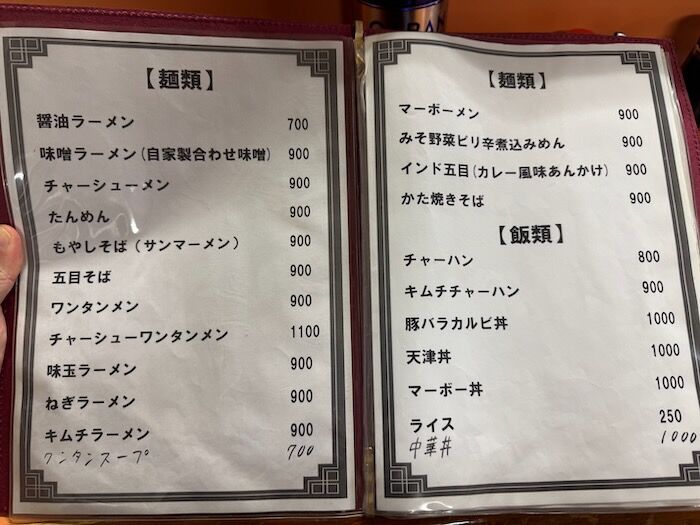 【麺類】
醤油ラーメン 700
味噌ラーメン(自家製合わせ味噌) 900
チャーシューメン 900
たんめん 900
もやしそば（サンマーメン） 900
五目そば 900
ワンタンメン 900
チャーシューワンタンメン 1100
味玉ラーメン 900
ねぎラーメン 900
キムチラーメン 900
ワンタンスープ 700
【麺類】
マーボーメン 900
みそ野菜ピリ辛煮込みめん 900
インド五目(カレー風味あんかけ) 900
かた焼きそば 900
【飯類】
チャーハン 800
キムチチャーハン 900
豚バラカルビ丼 1000
天津丼 1000
マーボー丼 1000
ライス 250
中華丼 1000